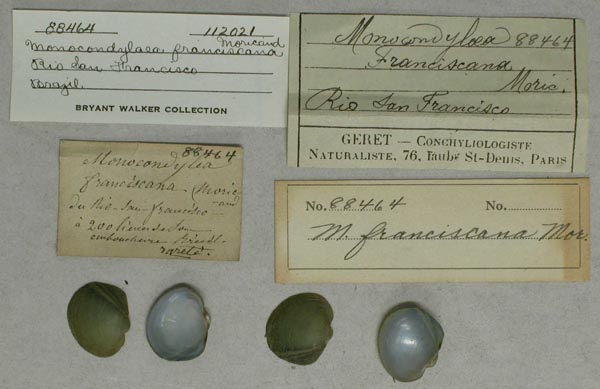 88464 112021
Moricand
Monocondylaea franciscana
Rio San Francisco
Brazil
BRYANT WALKER COLLECTION
Monocondylœa 88464
Franciscana
Moric.
Rio San Francisco
GERET — CONCHYLIOLOGISTE
NATURALISTE, 76, Faubg St-Denis, PARIS
88464
Monocondylea
franciscana - (Moric
and
du Rio-San-francisco-
à 200 lieues de son
embouchure Bresil-
rareté.
No. 88464 No.
M. franciscana Mor.